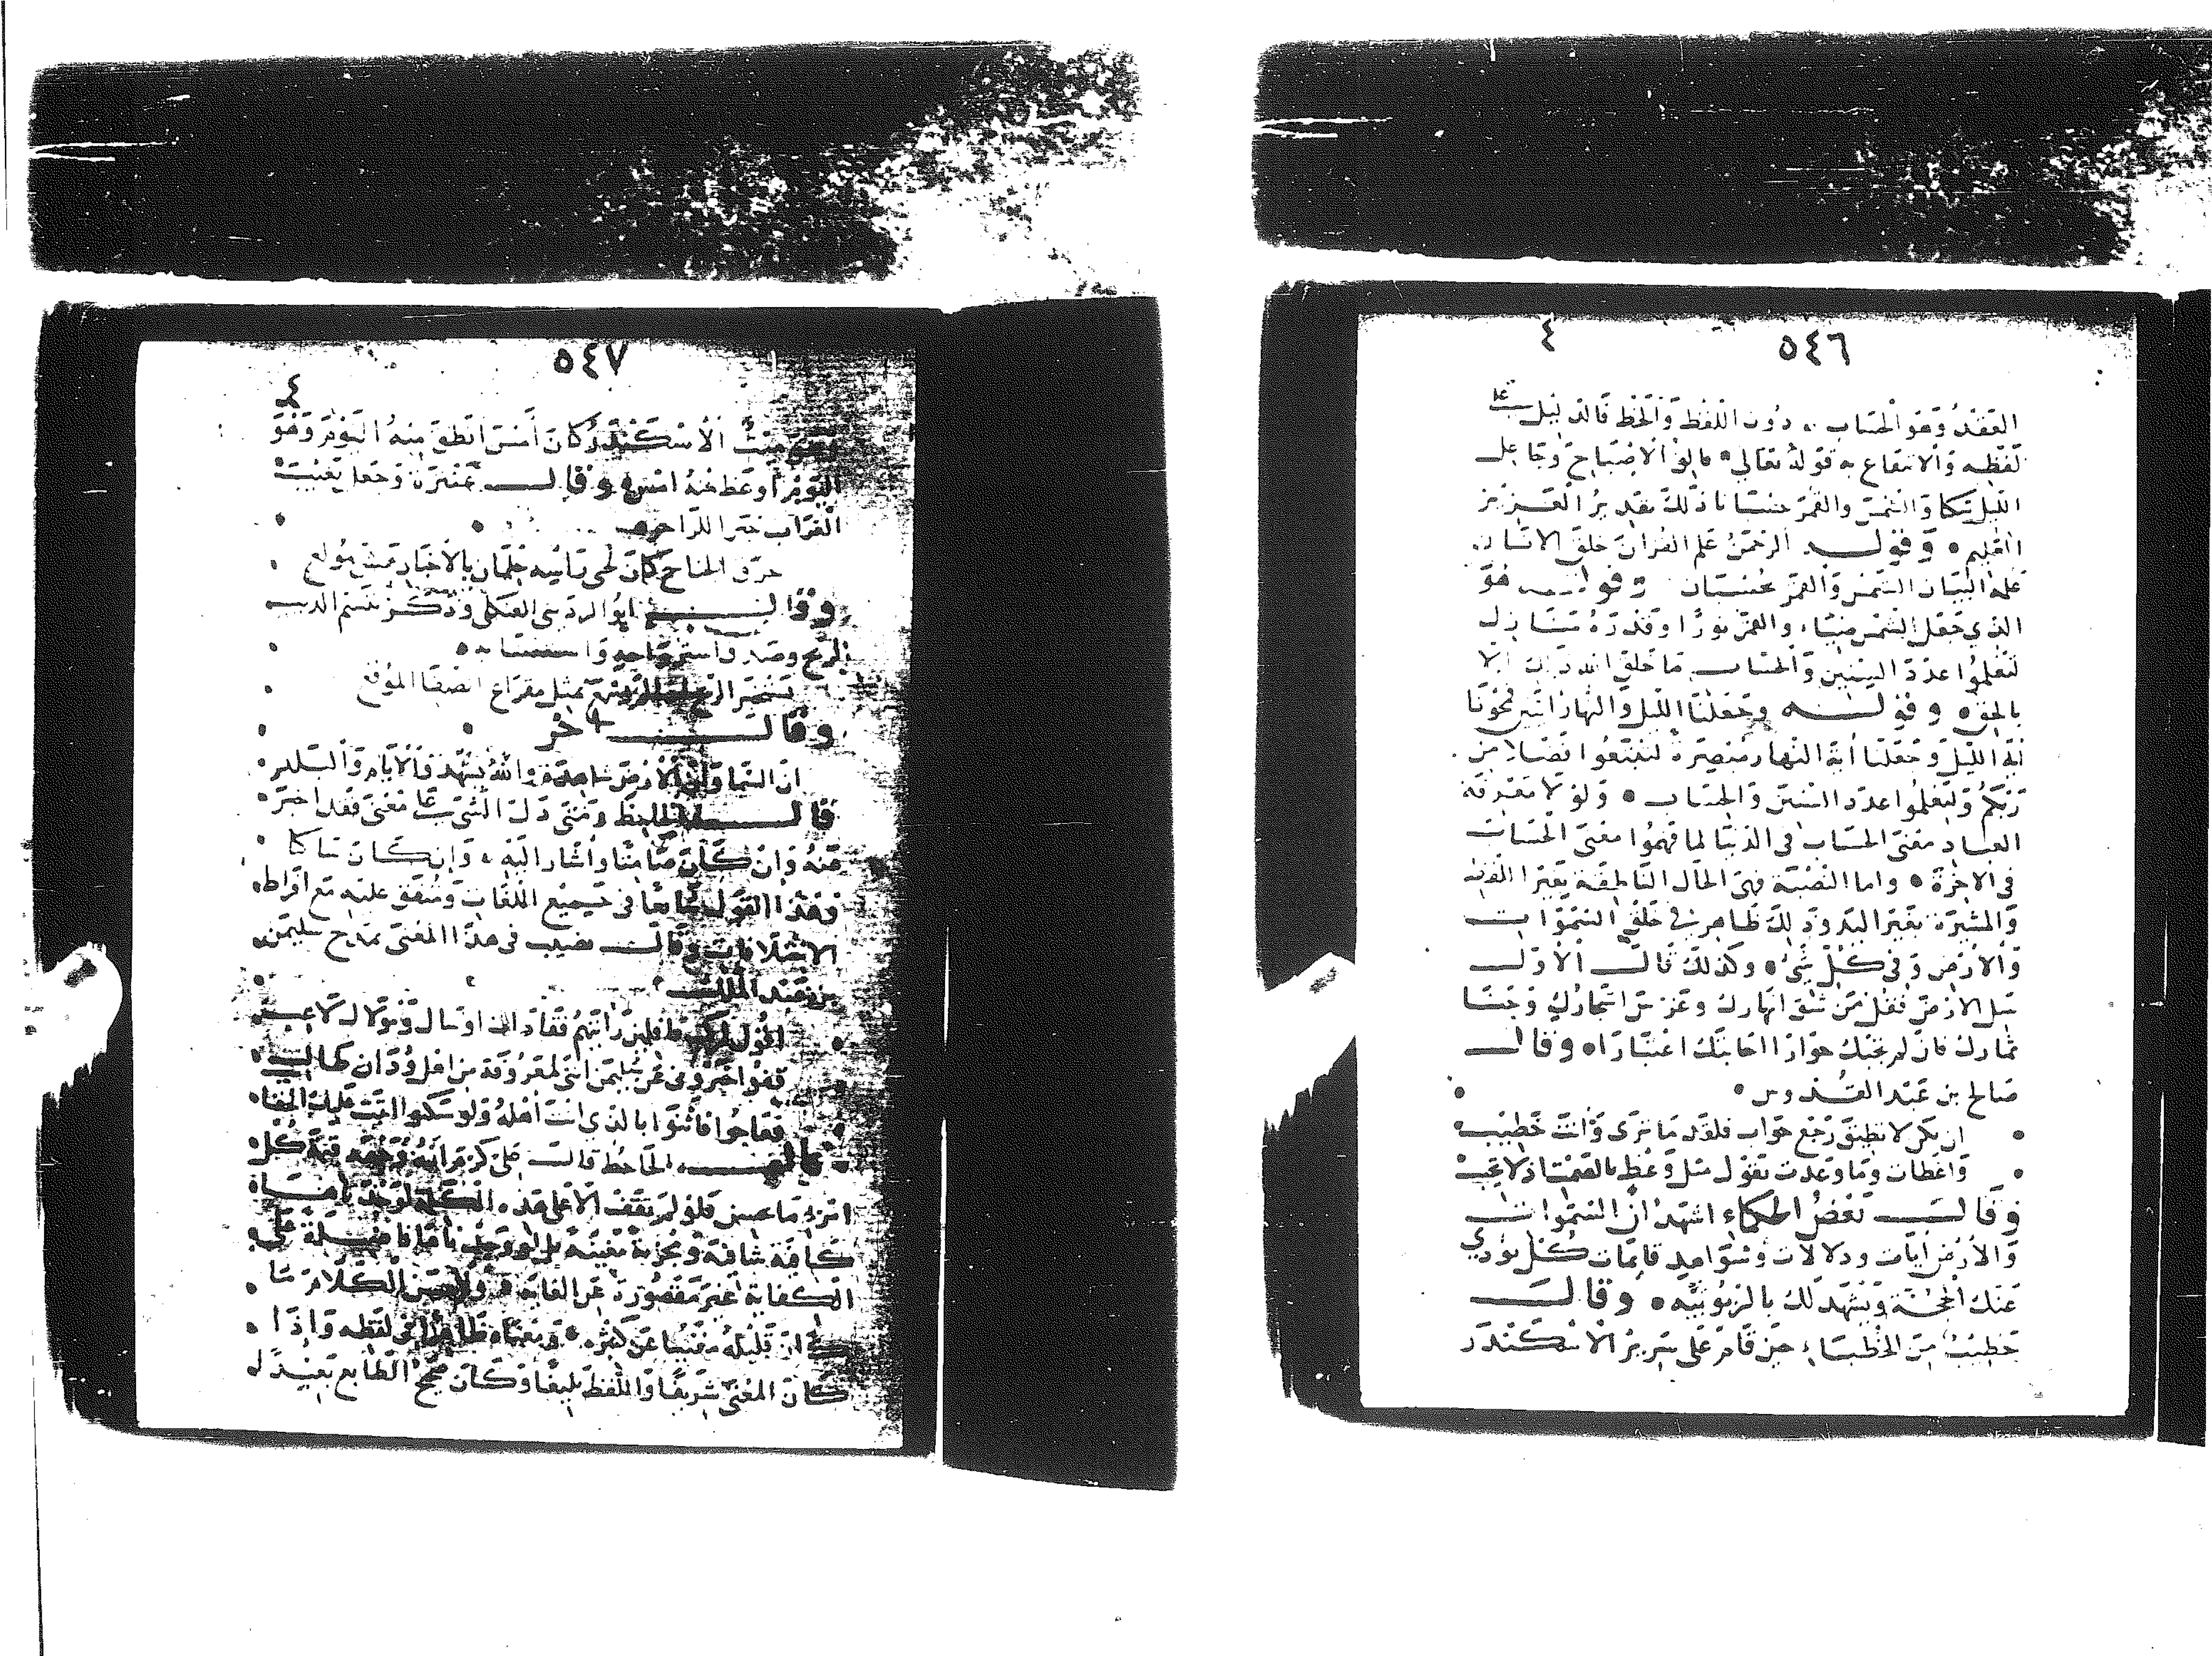 ٥٤٦
٤
العقد وهو الحساب دون اللفظ والخط فالدليل على
لفظه والانتفاع به قوله تعالى فالق الاصباح وجاعل
الليل سكنا والشمس والقمر حسبانا ذلك تقدير العزيز
العليم وقوله الرحمن علم القران خلق الانسان
علمه البيان الشمس والقمر بحسبان وقوله هو
الذي جعل الشمس ضياء والقمر نورا وقدره منازل
لتعلموا عدد السنين والحساب ما خلق الله ذلك الا
بالحق وقوله وجعلنا الليل والنهار ايتين فمحونا
اية الليل وجعلنا اية النهار مبصرة لتبتغوا فضلا من
ربكم ولتعلموا عدد السنين والحساب ولولا معرفة
العباد معنى الحساب في الدنيا لما فهموا معنى الحساب
في الاخرة واما النصبة فهي الحال الناطقة بغير اللفظ
والمشيرة بغير اليد وذلك ظاهر في خلق السموات
والارض وفي كل شيء وكذلك قال الاول
سل الارض فقل من شق انهارك وغرس اشجارك وجنى
ثمارك فان لم تجبك حوارا اجابتك اعتبارا وقال
صالح بن عبد القدوس
ان يكن لا تطيق رجع جواب فلقد ما ترى وانت خطيب
واعظات وما وعدت بقول مثل وعظ بالصمت اذ لا تجيب
وقال بعض الحكماء اشهد ان السموات
والارض ايات ودلالات وشواهد قايمات كل يودي
عنك الحجة ويشهد لك بالربوبيه وقال
خطيب من الخطباء حين قام على سرير الاسكندر
٥٤٧
٤
وهو ميت الاسكندر كان امس انطق منه اليوم وهو
اليوم اوعظ منه امس وقال عنترة وجعل نعيب
الغراب خبرا للزاجر
حرق الجناح كان لحيي راسه جلمان بالاخبار هش مولع
وقال ابو الرديني العكلي وذكر تنسم الذيب
الريح
وقال اخر
ان السما وان الارض شاهدة والله يشهد والايام والبلد
قال الجاحظ ومتى دل الشي على معنى فقد اخبر
عنه وان كان صامتا واشار اليه وان كان ساكتا
وهذا القول شايعا في جميع اللغات ومتفق عليه مع افراط
الاختلافات وقال نصيب في هذا المعنى يمدح سليمن
بن عبد الملك
اقول لركب قافلين رايتهم قفا ذات اوشال ومولاك قارب
قفوا خبروني عن سليمن انني لمعروفه من اهل ودان طالب
فعاجوا فاثنوا بالذي انت اهله ولو سكتوا اثنت عليك الحقايب
قال الجاحظ قال علي كرم الله وجهه قيمة كل
امرء ما يحسن فلو لم نقف الا على هذه الكلمة لوجدناها
كافية شافية ومجزية مغنية بل لوجدناها فاضلة على
الكفاية غير مقصورة عن الغاية واحسن الكلام ما
كان قليله مغنيا عن كثيره ومعناه ظاهرا في لفظه واذا
كان المعنى شريفا واللفظ بليغا وكان صحيح الطابع بعيدا